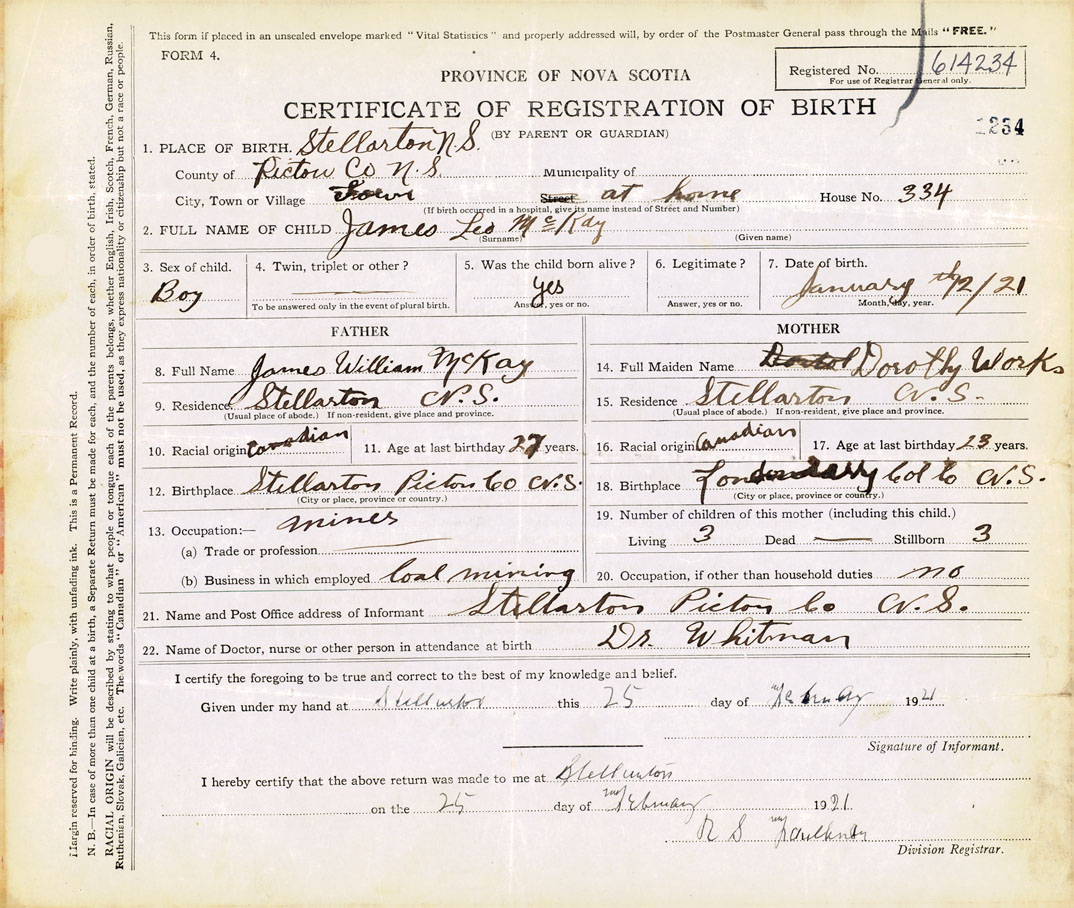 This form if placed in an unsealed envelope marked "Vital Statistics" and properly addressed will, by order of the Postmaster General pass through the Mails "FREE."
FORM 4.
PROVINCE OF NOVA SCOTIA
Registered No. 614234
For use of Registrar General only.
CERTIFICATE OF REGISTRATION OF BIRTH
1234
(BY PARENT OR GUARDIAN)
1. PLACE OF BIRTH. Stellarton N.S.
County of Pictou Co N.S. Municipality of
City, Town or Village Town Street at home House No. 334
(If birth occurred in a hospital, give its name instead of Street and Number)
2. FULL NAME OF CHILD James Leo McKay
(Surname) (Given name)
3. Sex of child. 4. Twin, triplet or other? 5. Was the child born alive? 6. Legitimate? 7. Date of birth.
Boy yes January th 12/21
To be answered only in the event of plural birth. Answer, yes or no. Answer, yes or no. Month, day, year.
FATHER MOTHER
8. Full Name James William McKay
9. Residence Stellarton N.S.
(Usual place of abode.) If non-resident, give place and province.
10. Racial origin Canadian 11. Age at last birthday 27 years.
12. Birthplace Stellarton Pictou Co N.S.
(City or place, province or country.)
13. Occupation:— mines
(a) Trade or profession
(b) Business in which employed Coal mining
14. Full Maiden Name Dorothy Works
15. Residence Stellarton N.S.
(Usual place of abode.) If non-resident, give place and province.
16. Racial origin Canadian 17. Age at last birthday 23 years.
18. Birthplace Londonderry Col Co N.S.
(City or place, province or country.)
19. Number of children of this mother (including this child.)
Living 3 Dead — Stillborn 3
20. Occupation, if other than household duties no
21. Name and Post Office address of Informant Stellarton Pictou Co N.S.
22. Name of Doctor, nurse or other person in attendance at birth Dr. Whitman
I certify the foregoing to be true and correct to the best of my knowledge and belief.
Given under my hand at Stellarton this 25 day of February 1921
Signature of Informant.
I hereby certify that the above return was made to me at Stellarton
on the 25 day of February 1921.
R S Faulkner
Division Registrar.
Margin reserved for binding. Write plainly, with unfading ink. This is a Permanent Record.
N. B.—In case of more than one child at a birth, a Separate Return must be made for each, and the number of each, in order of birth, stated.
RACIAL ORIGIN will be described by stating to what people or tongue each of the parents belongs, whether English, Irish, Scotch, French, German, Russian,
Ruthenian, Slovak, Galician, etc. The words "Canadian" or "American" must not be used, as they express nationality or citizenship but not a race or people.